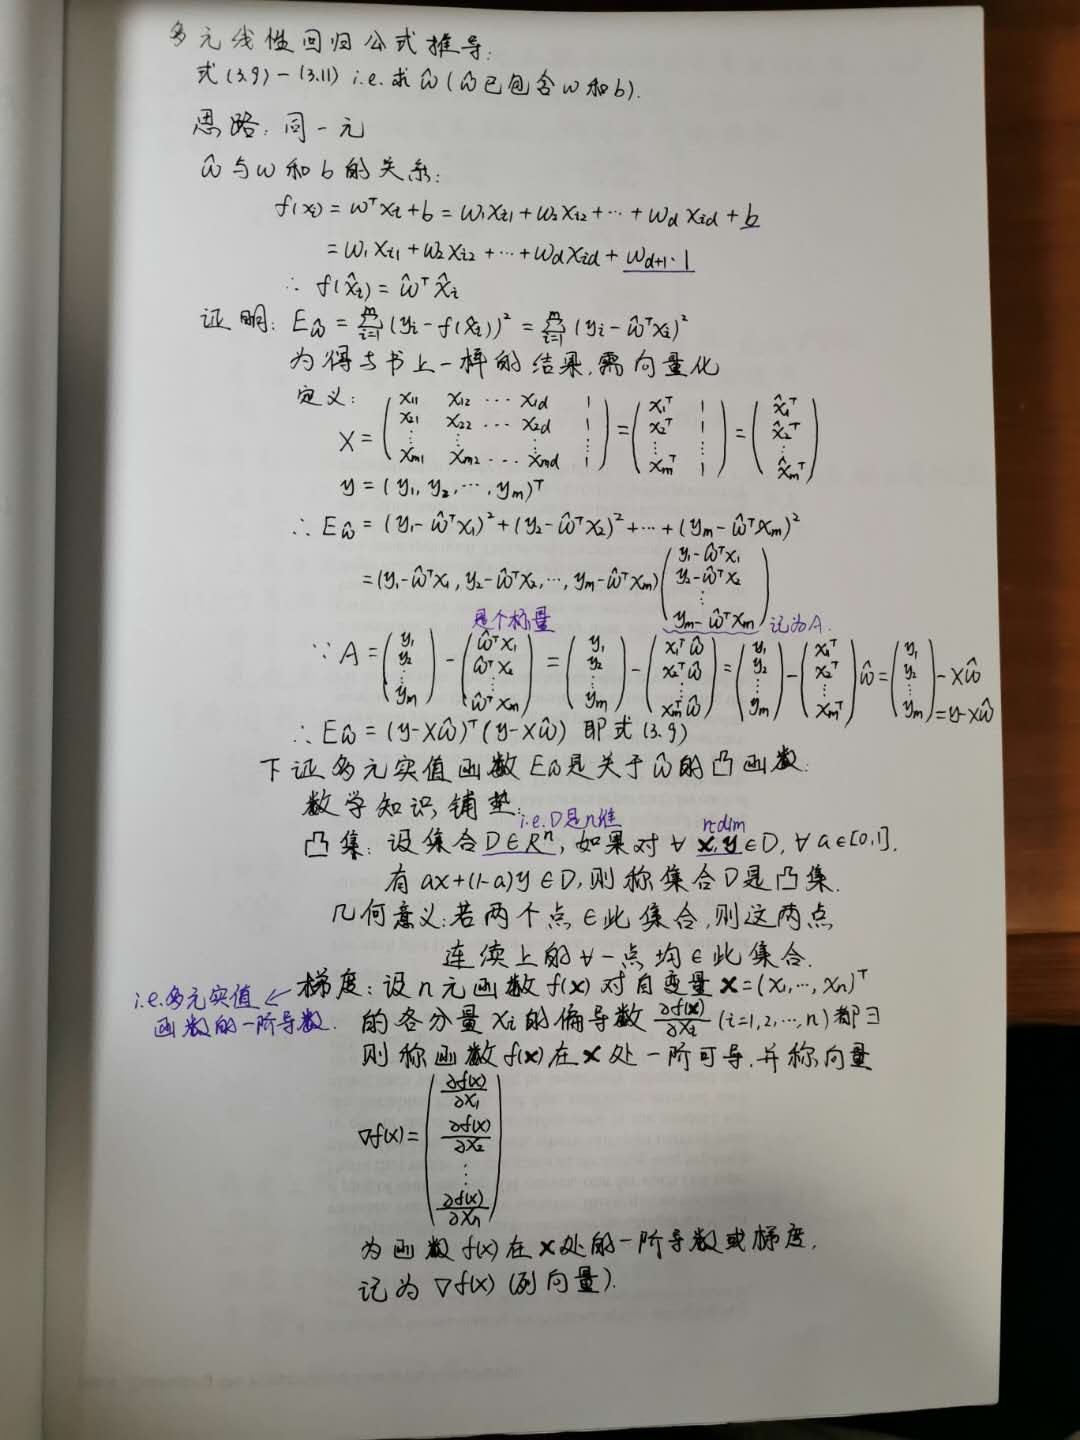 多元线性回归公式推导:
式(3.9)-(3.11) i.e.求ŵ(ŵ已包含w和b).
思路:同一元
ŵ与w和b的关系:
f(xᵢ)=wᵀxᵢ+b=w₁xᵢ₁+w₂xᵢ₂+…+w_d x_id+b
=w₁xᵢ₁+w₂xᵢ₂+…+w_d x_id+w_{d+1}·1
∴ f(x̂ᵢ)=ŵᵀx̂ᵢ
证明: E_ŵ=∑_{i=1}^m(yᵢ-f(x̂ᵢ))²=∑_{i=1}^m(yᵢ-ŵᵀx̂ᵢ)²
为得与书上一样的结果,需向量化
定义:
X=(x₁₁ x₁₂ … x_1d 1; x₂₁ x₂₂ … x_2d 1; ⋮ ⋮ ⋮ ⋮; x_m1 x_m2 … x_md 1)=(x₁ᵀ 1; x₂ᵀ 1; ⋮ ⋮; x_mᵀ 1)=(x̂₁ᵀ; x̂₂ᵀ; ⋮; x̂_mᵀ)
y=(y₁,y₂,…,y_m)ᵀ
∴ E_ŵ=(y₁-ŵᵀx₁)²+(y₂-ŵᵀx₂)²+…+(y_m-ŵᵀx_m)²
=(y₁-ŵᵀx₁,y₂-ŵᵀx₂,…,y_m-ŵᵀx_m)(y₁-ŵᵀx₁; y₂-ŵᵀx₂; ⋮; y_m-ŵᵀx_m)
是个标量 记为A.
∵ A=(y₁; y₂; ⋮; y_m)-(ŵᵀx₁; ŵᵀx₂; ⋮; ŵᵀx_m)=(y₁; y₂; ⋮; y_m)-(x₁ᵀŵ; x₂ᵀŵ; ⋮; x_mᵀŵ)=(y₁; y₂; ⋮; y_m)-(x₁ᵀ; x₂ᵀ; ⋮; x_mᵀ)ŵ=(y₁; y₂; ⋮; y_m)-Xŵ
=y-Xŵ
∴ E_ŵ=(y-Xŵ)ᵀ(y-Xŵ) 即式(3.9)
下证多元实值函数E_ŵ是关于ŵ的凸函数:
数学知识铺垫:
i.e.D是n维 n-dim
凸集:设集合D∈Rⁿ,如果对∀x,y∈D,∀a∈[0,1].
有ax+(1-a)y∈D,则称集合D是凸集.
几何意义:若两个点∈此集合,则这两点
连续上的∀一点均∈此集合.
i.e.多元实值
函数的一阶导数.
← 梯度:设n元函数f(x)对自变量x=(x₁,…,xₙ)ᵀ
的各分量xᵢ的偏导数∂f(x)/∂xᵢ(i=1,2,…,n)都∃
则称函数f(x)在x处一阶可导.并称向量
∇f(x)=(∂f(x)/∂x₁; ∂f(x)/∂x₂; ⋮; ∂f(x)/∂xₙ)
为函数f(x)在x处的一阶导数或梯度,
记为∇f(x)(列向量).